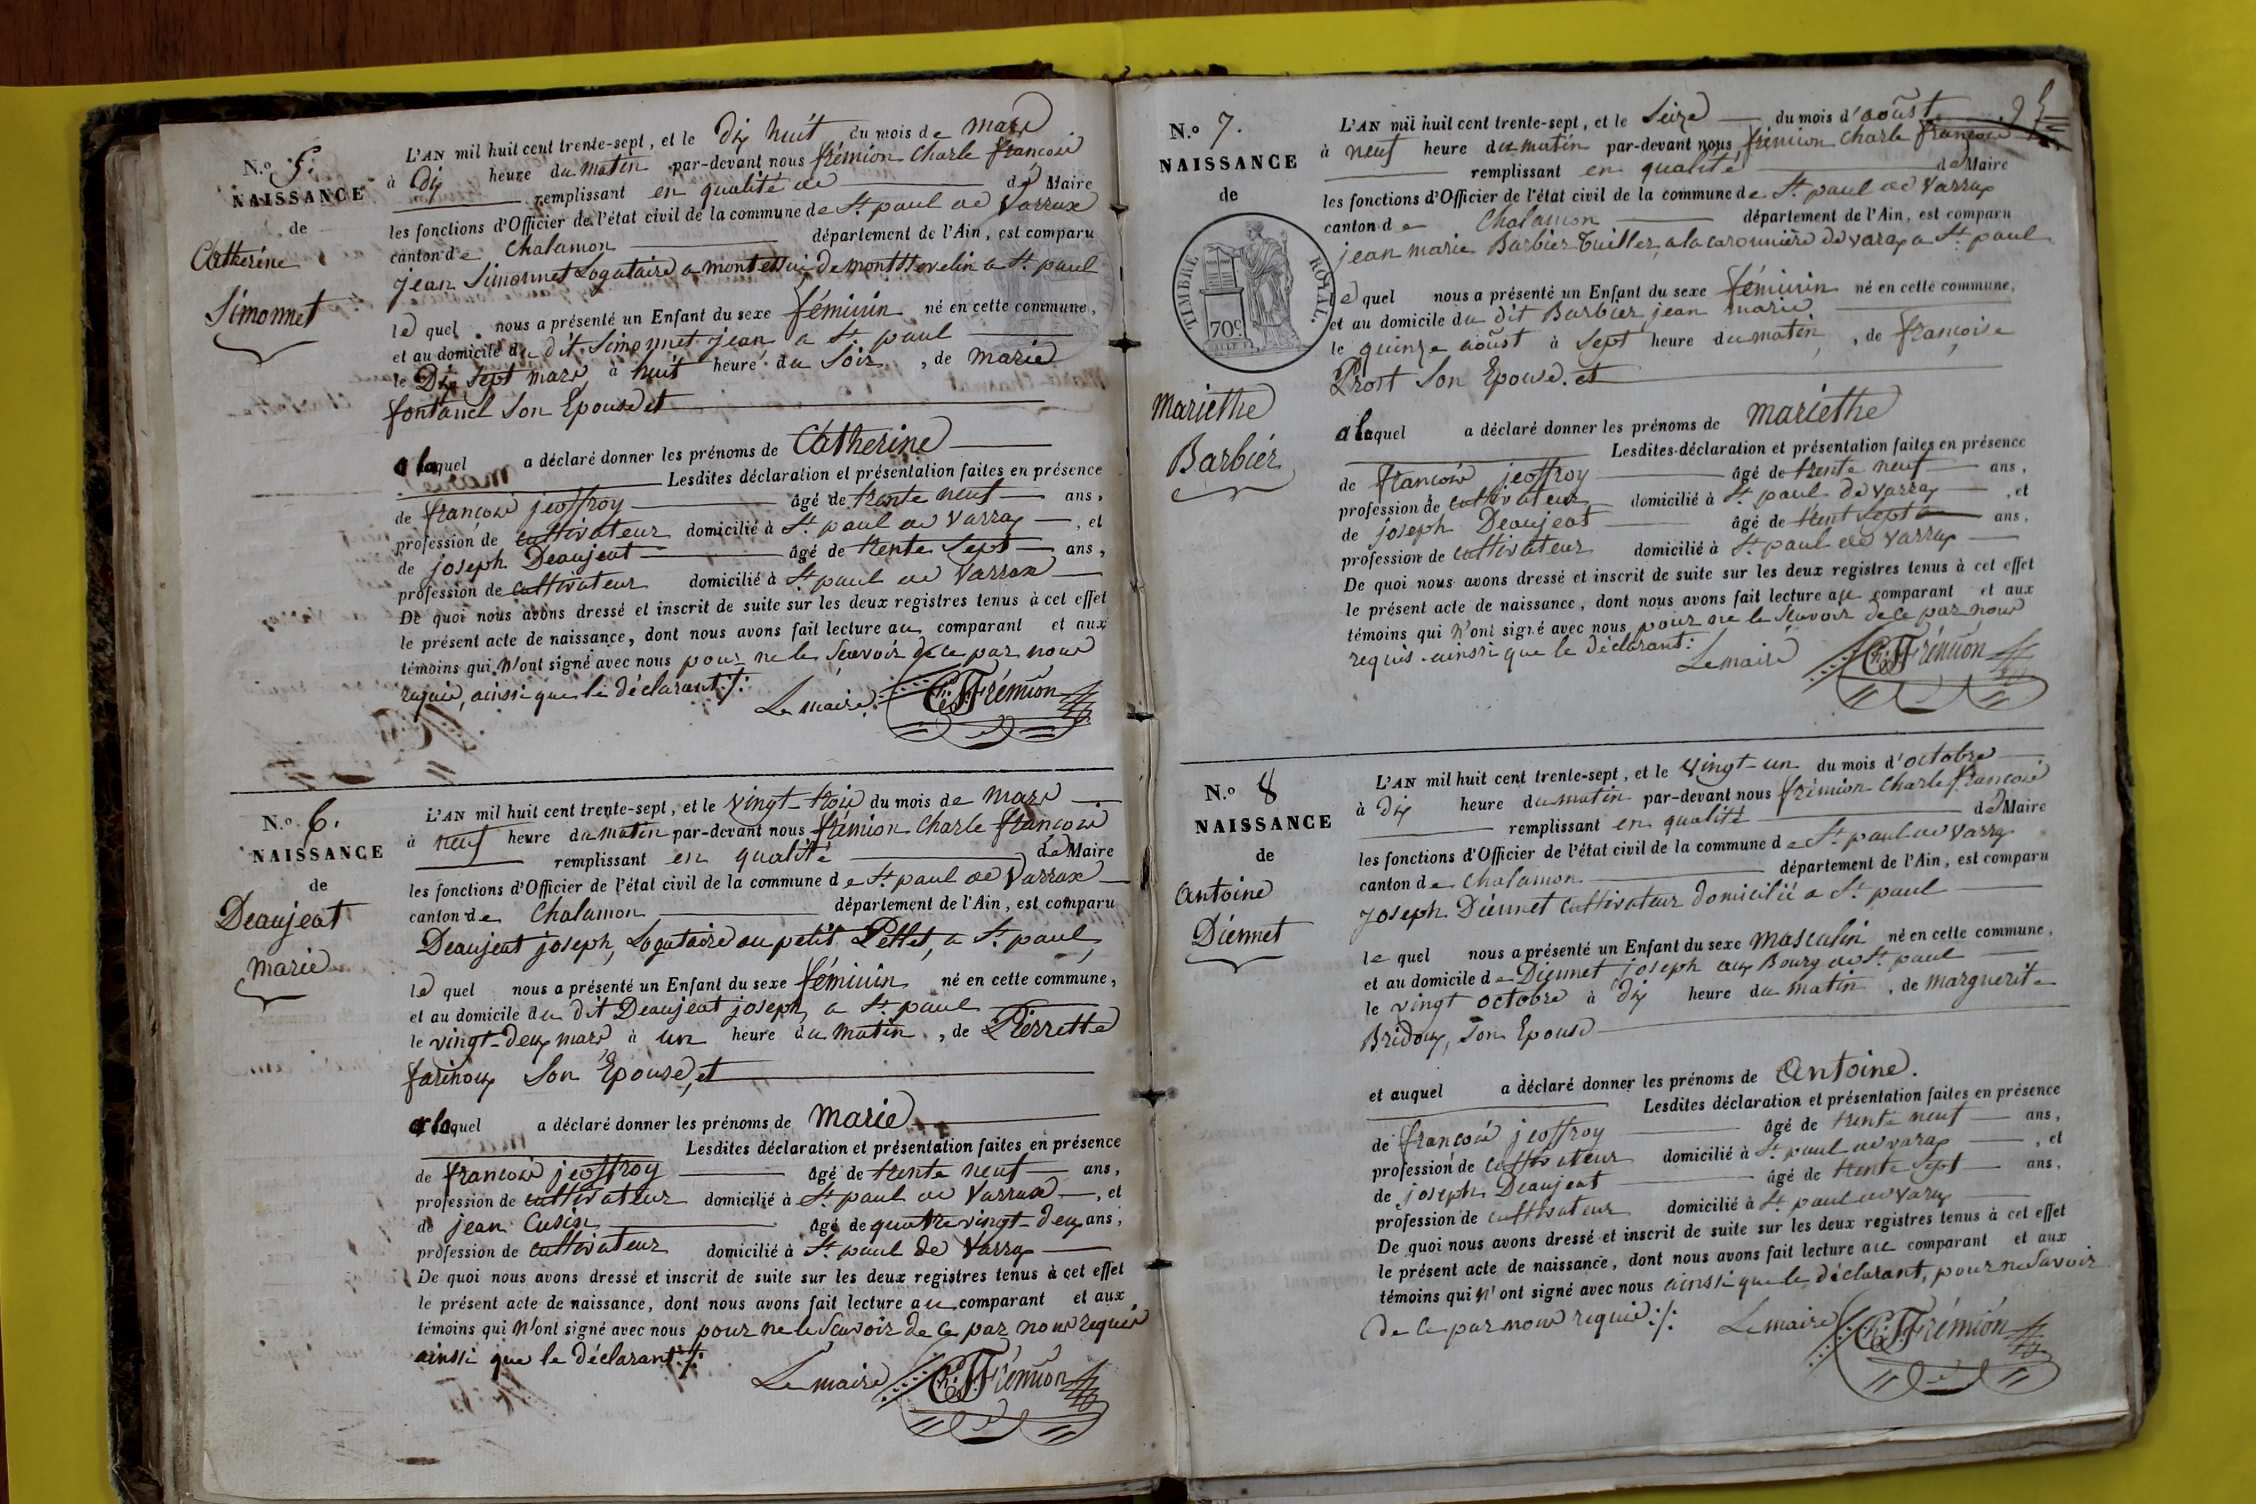 N.o 5.
NAISSANCE
de
Catherine
Simonnet
L'AN mil huit cent trente-sept, et le dix huit du mois de mars
à dix heure du matin par-devant nous frémion Charle françois
remplissant en qualité de de Maire
les fonctions d'Officier de l'état civil de la commune de St. paul de Varrax
canton de Chalamon département de l'Ain, est comparu
jean Simonnet Logataire a montessui de montssevelin a St. paul
le quel nous a présenté un Enfant du sexe féminin né en cette commune,
et au domicile du dit Simonnet jean a St. paul
le Dix Sept mars à huit heure du Soir, de marie
fontanel Son Epouse et
a la quel a déclaré donner les prénoms de Catherine
Lesdites déclaration et présentation faites en présence
de françois jeoffroy âgé de trente neuf ans,
profession de cultivateur domicilié à St. paul de Varrax, et
de joseph Deaujeat âgé de trente Sept ans,
profession de cultivateur domicilié à St. paul de Varrax
De quoi nous avons dressé et inscrit de suite sur les deux registres tenus à cet effet
le présent acte de naissance, dont nous avons fait lecture au comparant et aux
témoins qui n'ont signé avec nous pour ne le Scavoir de ce par nous
requis, ainsi que le déclarant :/:
Le maire Ch. F. Frémion
N.o 6.
NAISSANCE
de
Deaujeat
marie
L'AN mil huit cent trente-sept, et le vingt-trois du mois de mars
à neuf heure du matin par-devant nous frémion Charle françois
remplissant en qualité de Maire
les fonctions d'Officier de l'état civil de la commune de St. paul de Varrax
canton de Chalamon département de l'Ain, est comparu
Deaujeat joseph, Logataire au petit Pellet, a St. paul,
le quel nous a présenté un Enfant du sexe féminin né en cette commune,
et au domicile du dit Deaujeat joseph a St. paul
le vingt-deux mars à un heure du matin, de Pierrette
farihoux Son Epouse, et
a la quel a déclaré donner les prénoms de marie
Lesdites déclaration et présentation faites en présence
de françois jeoffroy âgé de trente neuf ans,
profession de cultivateur domicilié à St. paul de Varrax, et
de jean Cusin âgé de quatre vingt-deux ans,
profession de cultivateur domicilié à St. paul de Varrax
De quoi nous avons dressé et inscrit de suite sur les deux registres tenus à cet effet
le présent acte de naissance, dont nous avons fait lecture au comparant et aux
témoins qui n'ont signé avec nous pour ne le Scavoir de ce par nous requis
ainsi que le déclarant :/:
Le maire Ch. F. Frémion
N.o 7.
NAISSANCE
de
TIMBRE ROYAL.
70c.
mariethe
Barbier
L'AN mil huit cent trente-sept, et le Seize du mois d'aoûst
à neuf heure du matin par-devant nous frémion Charle françois
remplissant en qualité de Maire
les fonctions d'Officier de l'état civil de la commune de St. paul de Varrax
canton de Chalamon département de l'Ain, est comparu
jean marie Barbier Tuillez, a la caronnière de varax a St. paul
le quel nous a présenté un Enfant du sexe féminin né en cette commune,
et au domicile du dit Barbier jean marie
le quinze aoûst à Sept heure du matin, de françoise
Prost Son Epouse. et
a la quel a déclaré donner les prénoms de mariethe
Lesdites déclaration et présentation faites en présence
de françois jeoffroy âgé de trente neuf ans,
profession de cultivateur domicilié à St. paul de Varrax, et
de joseph Deaujeat âgé de trent Sept ans,
profession de cultivateur domicilié à St. paul de Varrax
De quoi nous avons dressé et inscrit de suite sur les deux registres tenus à cet effet
le présent acte de naissance, dont nous avons fait lecture au comparant et aux
témoins qui n'ont signé avec nous pour ne le Scavoir de ce par nous
requis. ainsi que le déclarant :
Le maire Ch. F. Frémion
N.o 8
NAISSANCE
de
Antoine
Diennet
L'AN mil huit cent trente-sept, et le vingt-un du mois d'octobre
à dix heure du matin par-devant nous frémion Charle françois
remplissant en qualité de Maire
les fonctions d'Officier de l'état civil de la commune de St. paul de Varrax
canton de Chalamon département de l'Ain, est comparu
joseph Diennet cultivateur domicilié a St. paul
le quel nous a présenté un Enfant du sexe masculin né en cette commune,
et au domicile de Diennet joseph aux Bourg de St. paul
le vingt octobre à dix heure du matin, de marguerite
Bridoux, Son Epouse
et auquel a déclaré donner les prénoms de Antoine.
Lesdites déclaration et présentation faites en présence
de françois jeoffroy âgé de trente neuf ans,
profession de cultivateur domicilié à St. paul de varax, et
de joseph Deaujeat âgé de trente Sept ans,
profession de cultivateur domicilié à St. paul de varax
De quoi nous avons dressé et inscrit de suite sur les deux registres tenus à cet effet
le présent acte de naissance, dont nous avons fait lecture au comparant et aux
témoins qui n'ont signé avec nous ainsi que le déclarant, pour ne Savoir
de ce par nous requis :/:
Le maire Ch. F. Frémion